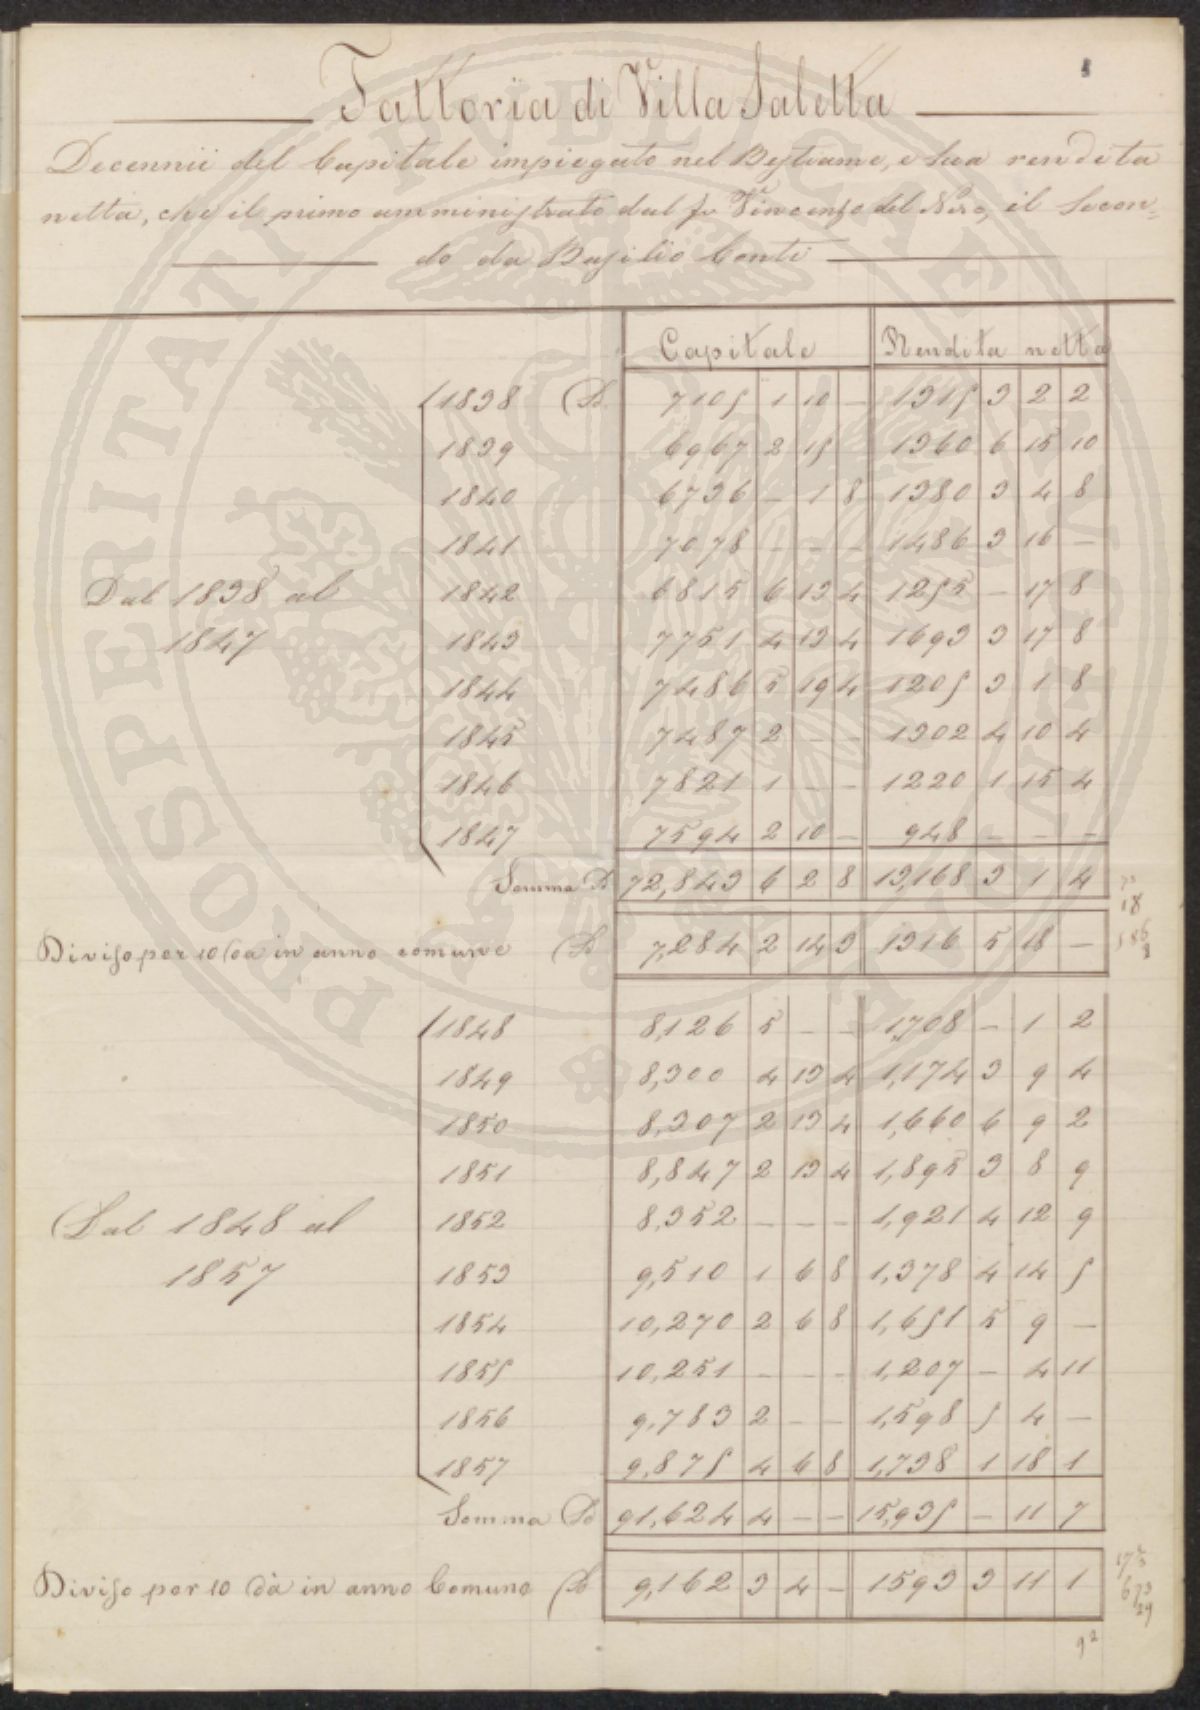 Fattoria di Villa Saletta
Decennii del Capitale impiegato nel Bestiame, e sua rendita
netta, che il primo amministrato dal fu Vincenzo del Nero, il Secon=
do da Basilio Conti
Capitale Rendita netta
1838 7105 1 10 – 1315 3 2 2
1839 6967 2 15 1360 6 15 10
1840 6736 – 1 8 1380 3 4 8
1841 7078 – – – 1486 3 16 –
Dal 1838 al 1842 6815 6 13 4 1255 – 17 8
1847 1843 7751 4 13 4 1693 3 17 8
1844 7486 5 19 4 1205 3 1 8
1845 7487 2 – – 1302 4 10 4
1846 7821 1 – – 1220 1 15 4
1847 7594 2 10 – 948 – – –
Somma 72,843 6 2 8 13,168 3 1 4
18
Diviso per 10 da in anno comune 7,284 2 14 3 1316 5 18 –
1848 8,126 5 – – 1,708 – 1 2
1849 8,300 4 13 4 1,174 3 9 4
1850 8,307 2 13 4 1,660 6 9 2
1851 8,847 2 13 4 1,895 3 8 9
Dal 1848 al 1852 8,352 – – – 1,921 4 12 9
1857 1853 9,510 1 6 8 1,378 4 14 5
1854 10,270 2 6 8 1,651 5 9 –
1855 10,251 – – – 1,207 – 4 11
1856 9,783 2 – – 1,598 5 4 –
1857 9,875 4 6 8 1,738 1 18 1
Somma 91,624 4 – – 15,935 – 11 7
Diviso per 10 dà in anno Comune 9,162 3 4 – 1593 3 11 1
29
92
PROSPERITATI PUBLICAE AUGENDAE